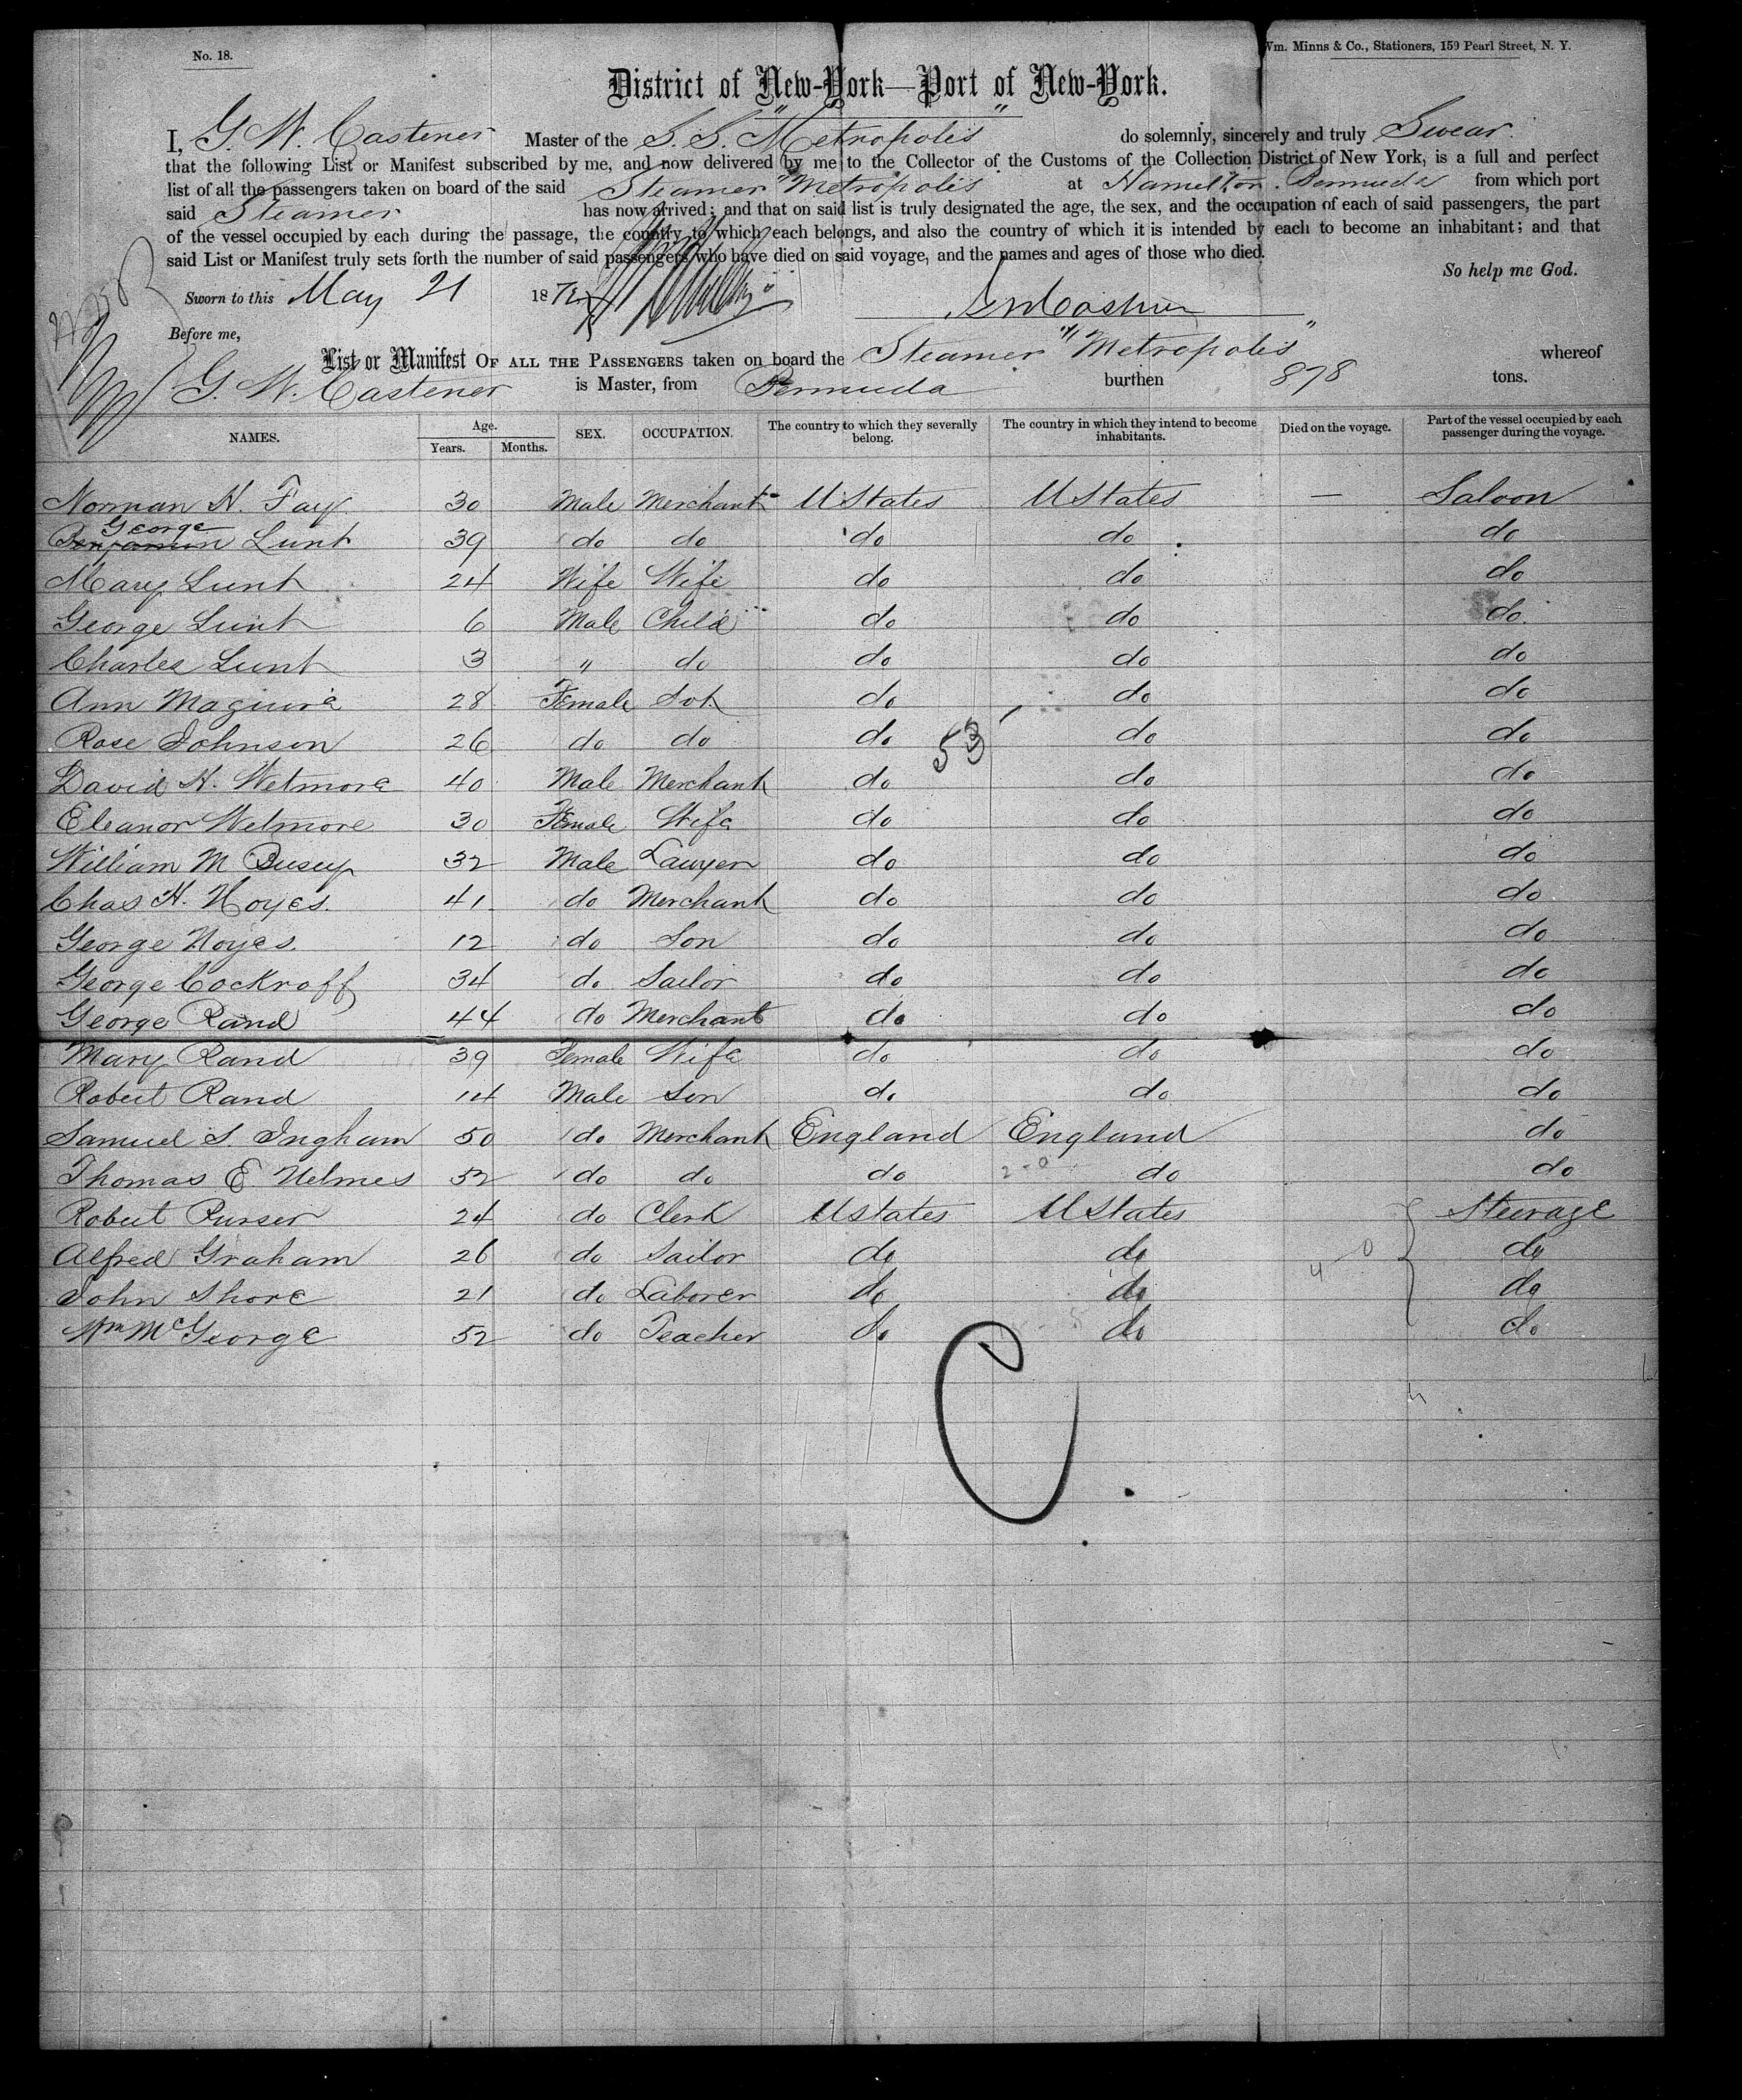 No. 18.
Wm. Minns & Co., Stationers, 159 Pearl Street, N. Y.
District of New-York—Port of New-York.
I, G. W. Castener Master of the S. S. "Metropolis" do solemnly, sincerely and truly Swear
that the following List or Manifest subscribed by me, and now delivered by me to the Collector of the Customs of the Collection District of New York, is a full and perfect
list of all the passengers taken on board of the said Steamer "Metropolis" at Hamelton. Bermuda from which port
said Steamer has now arrived; and that on said list is truly designated the age, the sex, and the occupation of each of said passengers, the part
of the vessel occupied by each during the passage, the country to which each belongs, and also the country of which it is intended by each to become an inhabitant; and that
said List or Manifest truly sets forth the number of said passengers who have died on said voyage, and the names and ages of those who died.
So help me God.
Sworn to this May 21 187
Before me,
List or Manifest OF ALL THE PASSENGERS taken on board the Steamer "Metropolis" whereof
G. W. Castener is Master, from Bermuda burthen 878 tons.
NAMES. Age. Years. Months. SEX. OCCUPATION. The country to which they severally belong. The country in which they intend to become inhabitants. Died on the voyage. Part of the vessel occupied by each passenger during the voyage.
Norman H. Fay 30 Male Merchant U States U States — Saloon
George
Benjamin Lunt 39 do do do do do
Mary Lunt 24 Wife Wife do do do
George Lunt 6 Male Child do do do
Charles Lunt 3 " do do do do
Ann Maguire 28 Female do do do
Rose Johnson 26 do do do do do
53
David H. Wetmore 40 Male Merchant do do do
Eleanor Wetmore 30 Female Wife do do do
William M Busey 32 Male Lawyer do do do
Chas H. Noyes. 41 do Merchant do do do
George Noyes. 12 do Son do do do
George Cockroff 34 do Sailor do do do
George Rand 44 do Merchant do do do
Mary Rand 39 Female Wife do do do
Robert Rand 14 Male Son do do do
Samuel S. Ingham 50 do Merchant England England do
Thomas E. Helmes 52 do do do do do
Robert Purser 24 do Clerk U States U States Steerage
Alfred Graham 26 do Sailor do do do
John Shore 21 do Laborer do do do
Wm McGeorge 52 do Teacher do do do
C